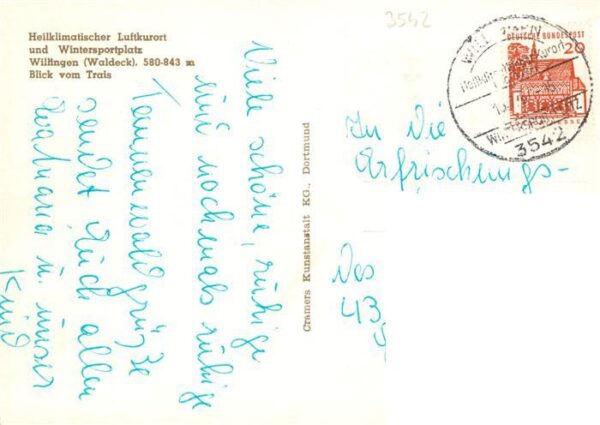 Heilklimatischer Luftkurort
und Wintersportplatz
Willingen (Waldeck). 580-843 m
Blick vom Trais
Viele schöne, ruhige
und nochmals ruhige
Tannenwaldgrüße
sendet Euch allen
u. unser
Kind
Cramers Kunstanstalt KG., Dortmund
3542
DEUTSCHE BUNDESPOST
20
WILLINGEN
3542
In die
Erfrischungs-
Des
43